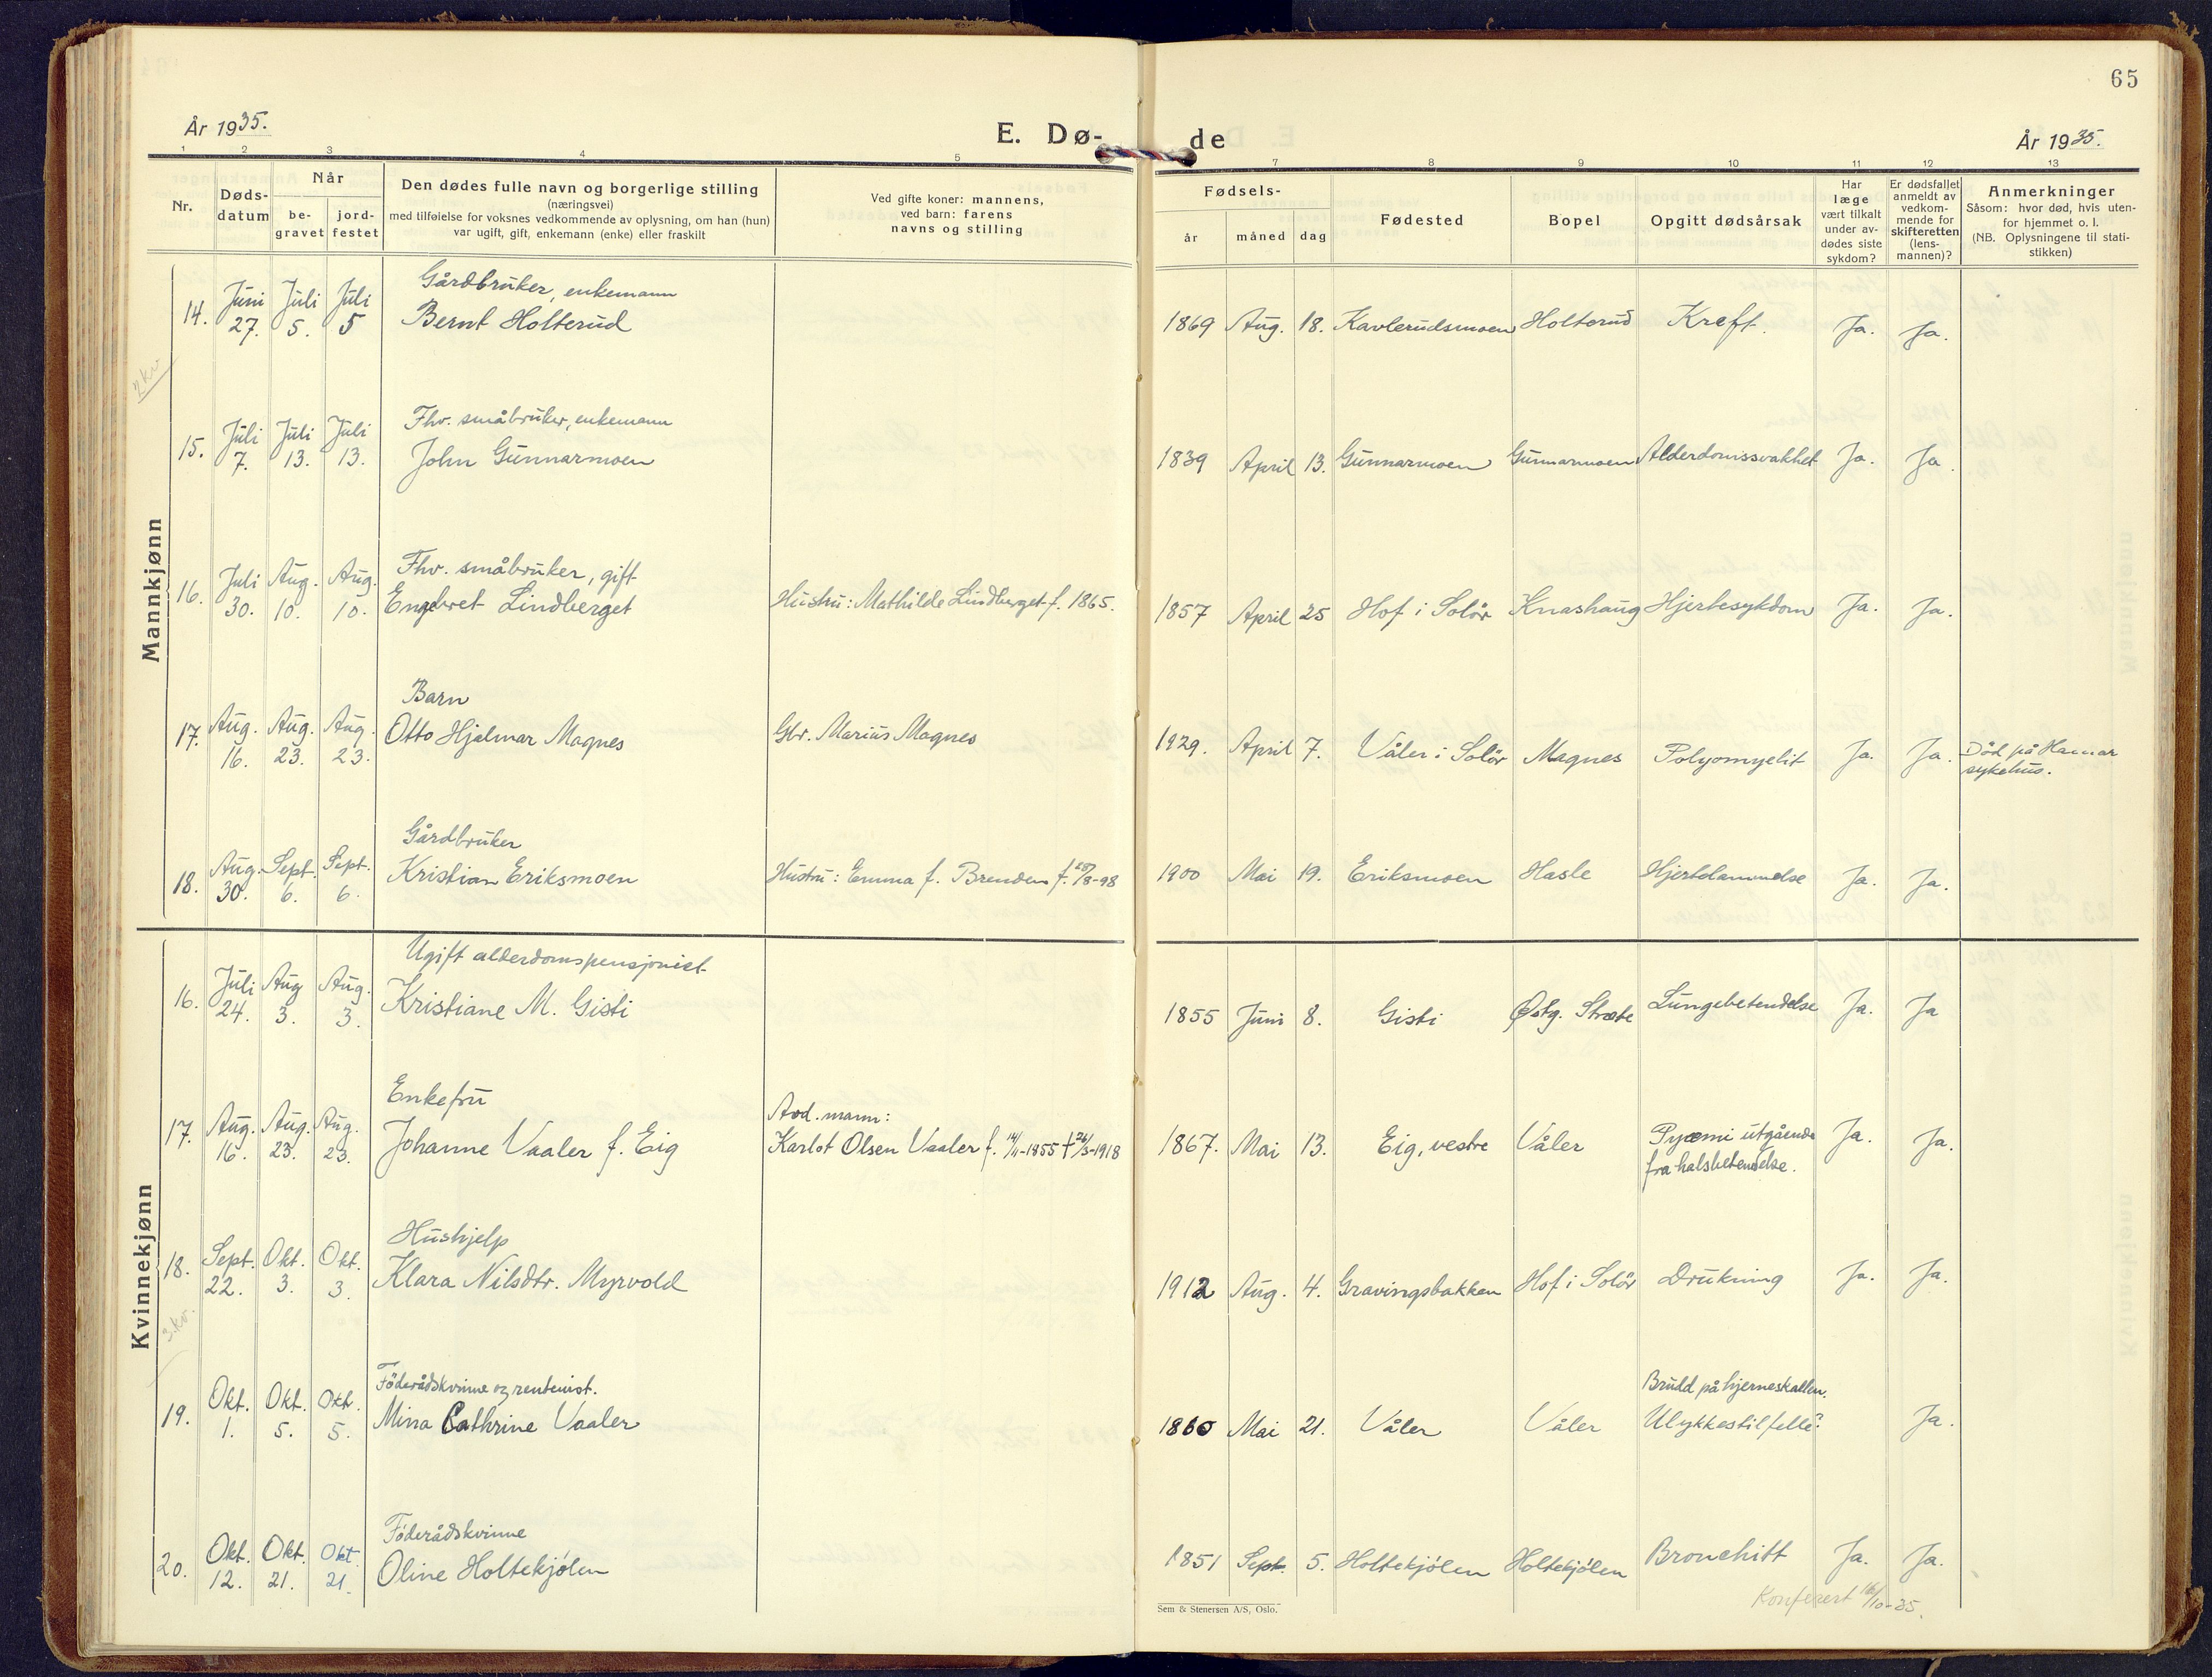 65
År 1935.
E. Dø-
de
År 1935.
1 2 3 4 5 7 8 9 10 11 12 13
Nr.
Døds-
datum
Når
be-
gravet
jord-
festet
Den dødes fulle navn og borgerlige stilling
(næringsvei)
med tilføielse for voksnes vedkommende av oplysning, om han (hun)
var ugift, gift, enkemann (enke) eller fraskilt
Ved gifte koner: mannens,
ved barn: farens
navns og stilling
Fødsels-
år måned dag
Fødested
Bopel
Opgitt dødsårsak
Har
læge
vært tilkalt
under av-
dødes siste
sykdom?
Er dødsfallet
anmeldt av
vedkom-
mende for
skifteretten
(lens-
mannen)?
Anmerkninger
Såsom: hvor død, hvis uten-
for hjemmet o. l.
(NB. Oplysningene til stati-
stikken)
Mannkjønn
Gårdbruker, enkemann
14. Juni 27. Juli 5. Juli 5 Bernt Holterud 1869 Aug. 18. Kavlerudsmoen Holterud Kreft. Ja. Ja.
2 kv
Fhv. småbruker, enkemann
15. Juli 7. Juli 13. Juli 13. John Gunnarmoen 1839 April 13. Gunnarmoen Gunnarmoen Alderdomssvakhet Ja. Ja.
Fhv. småbruker, gift
16. Juli 30. Aug. 10. Aug. 10. Engebret Lindberget Hustru: Mathilde Lindberget f. 1865. 1857 April 25 Hof i Solør Knashaug Hjertesykdom Ja. Ja.
Barn
17. Aug. 16. Aug. 23. Aug. 23. Otto Hjalmar Magnes Gbr. Marius Magnes 1929. April 7. Våler i Solør Magnes Polyomyelit Ja. Ja. Död på Hamar
sykehus.
Gårdbruker
18. Aug. 30. Sept. 6. Sept. 6. Kristian Eriksmoen Hustru: Emma f. Brenden f. 28/8-98 1900 Mai 19. Eriksmoen Hasle Hjertelammelse Ja. Ja.
Kvinnekjønn
Ugift alderdomspensjonist
16. Juli 24. Aug 3. Aug. 3. Kristiane M. Gisti 1855 Juni 8. Gisti Østg. Stræte Lungebetendelse Ja. Ja
Enkefru
17. Aug. 16. Aug. 23. Aug. 23. Johanne Vaaler f. Eig Avd. mann:
Karlot Olsen Vaaler f. 14/11-1855 † 26/3-1918 1867. Mai 13. Eig, vestre Våler Pyæmi utgående
fra halsbetendelse. Ja. Ja.
Hushjelp
18. Sept. 22. Okt. 3. Okt. 3. Klara Nilsdtr. Myrvold 1912 Aug. 4. Gravingsbakken Hof i Solör Drukning Ja. Ja.
3. kv.
Föderådskvinne og rentenist.
19. Okt. 1. Okt. 5. Okt. 5. Mina Cathrine Vaaler 1860 Mai 21. Våler Våler Brudd på hjerneskallen.
Ulykkestilfelle? Ja.
Föderådskvinne
20. Okt. 12. Okt. 21. Okt 21. Oline Holtekjölen 1851 Sept. 5. Holtekjölen Holtekjölen Bronchitt Ja. Ja.
Konferert 16/10-35.
Sem & Stenersen A/S, Oslo.